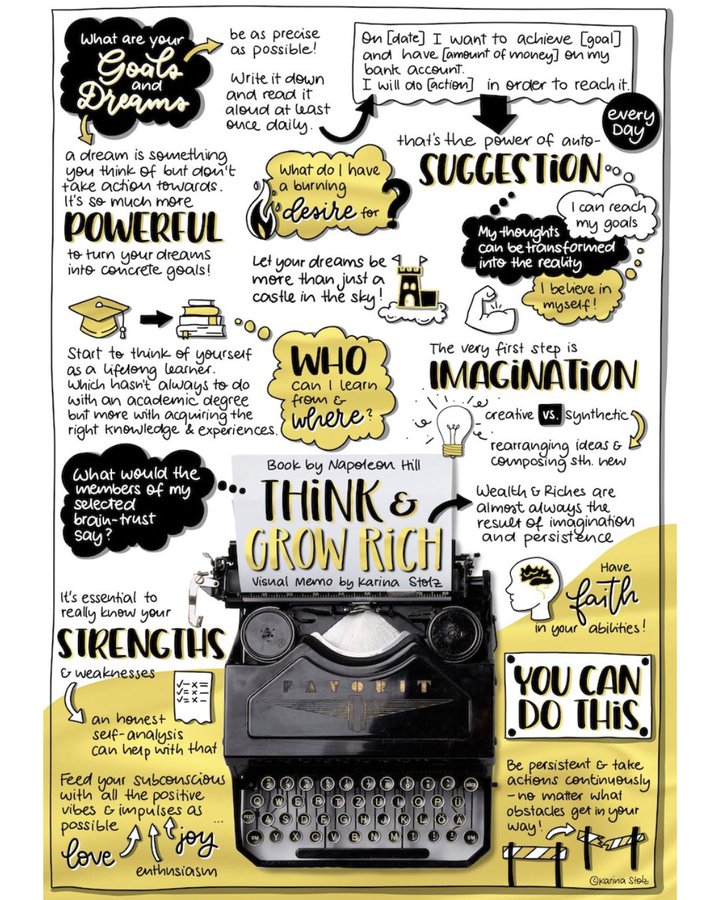 What are your
Goals
and
Dreams
be as precise
as possible!
Write it down
and read it
aloud at least
once daily.
On [date] I want to achieve [goal]
and have [amount of money] on my
bank account.
I will do [action] in order to reach it.
every
DAY
that's the power of auto-
SUGGESTION
a dream is something
you think of but don't
take action towards.
It's so much more
POWERFUL
to turn your dreams
into concrete goals!
What do I have
a burning
desire for
?
I can reach
my goals
My thoughts
can be transformed
into the reality
I believe in
myself!
Let your dreams be
more than just a
castle in the sky!
Start to think of yourself
as a lifelong learner.
Which hasn't always to do
with an academic degree
but more with acquiring the
right knowledge & experiences.
WHO
can I learn
from &
where?
The very first step is
IMAGINATION
creative vs. synthetic
rearranging ideas &
composing sth. new
What would the
members of my
selected
brain-trust
say?
Book by Napoleon Hill
THINK &
GROW RICH
Visual Memo by Karina Stolz
Wealth & Riches are
almost always the
result of imagination
and persistence
Have
faith
in your abilities!
It's essential to
really know your
STRENGTHS
& weaknesses
an honest
self-analysis
can help with that
FAVORIT
YOU CAN
DO THIS
Feed your subconscious
with all the positive
vibes & impulses as
possible ...
love
joy
enthusiasm
Be persistent & take
actions continuously
- no matter what
obstacles get in your
way!
Q W E R T Z U I O P Ü
A S D F G H J K L Ö Ä
Y X C V B N M
©Karina Stolz